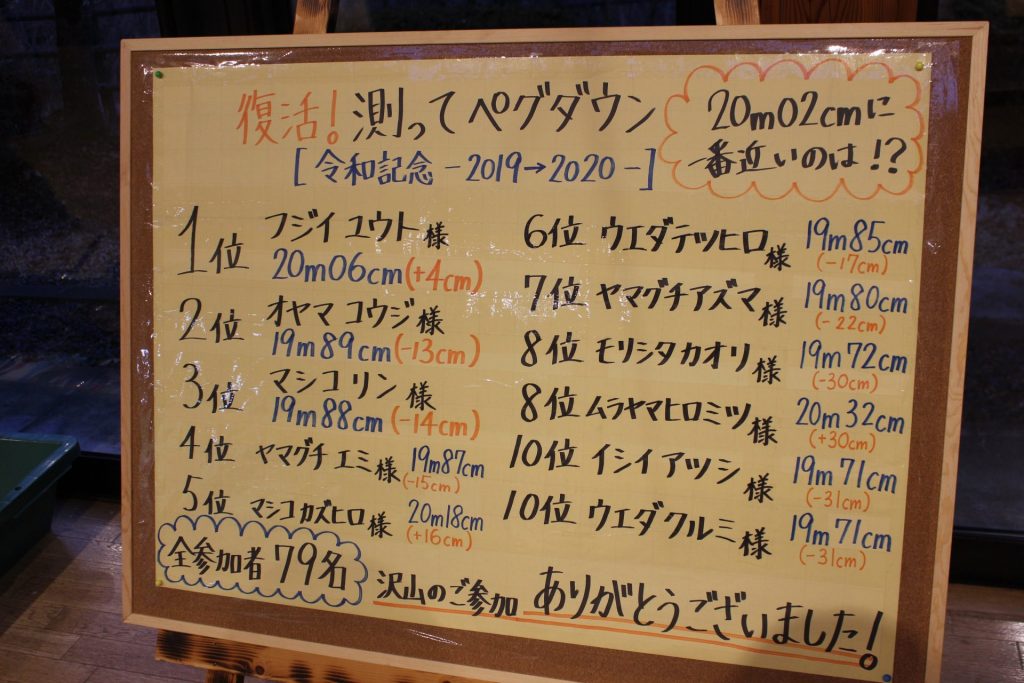 復活!測ってペグダウン
[令和記念-2019→2020-]
20m02cmに
一番近いのは!?
1位 フジイユウト様
20m06cm(+4cm)
2位 オヤマコウジ様
19m89cm(-13cm)
3位 マシコリン様
19m88cm(-14cm)
4位 ヤマグチエミ様 19m87cm
(-15cm)
5位 マシコカズヒロ様 20m18cm
(+16cm)
6位 ウエダテツヒロ様 19m85cm
(-17cm)
7位 ヤマグチアズマ様 19m80cm
(-22cm)
8位 モリシタカオリ様 19m72cm
(-30cm)
8位 ムラヤマヒロミツ様 20m32cm
(+30cm)
10位 イシイアツシ様 19m71cm
(-31cm)
10位 ウエダクルミ様 19m71cm
(-31cm)
全参加者79名
沢山のご参加ありがとうございました!